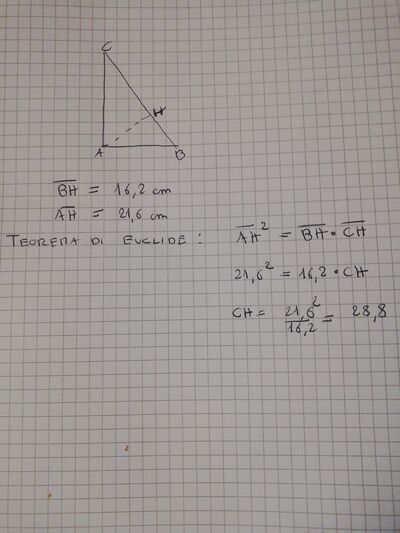 C
H
A
B
BH = 16,2 cm
AH = 21,6 cm
TEOREMA DI EUCLIDE :
AH² = BH · CH
21,6² = 16,2 · CH
CH = 21,6² / 16,2 = 28,8